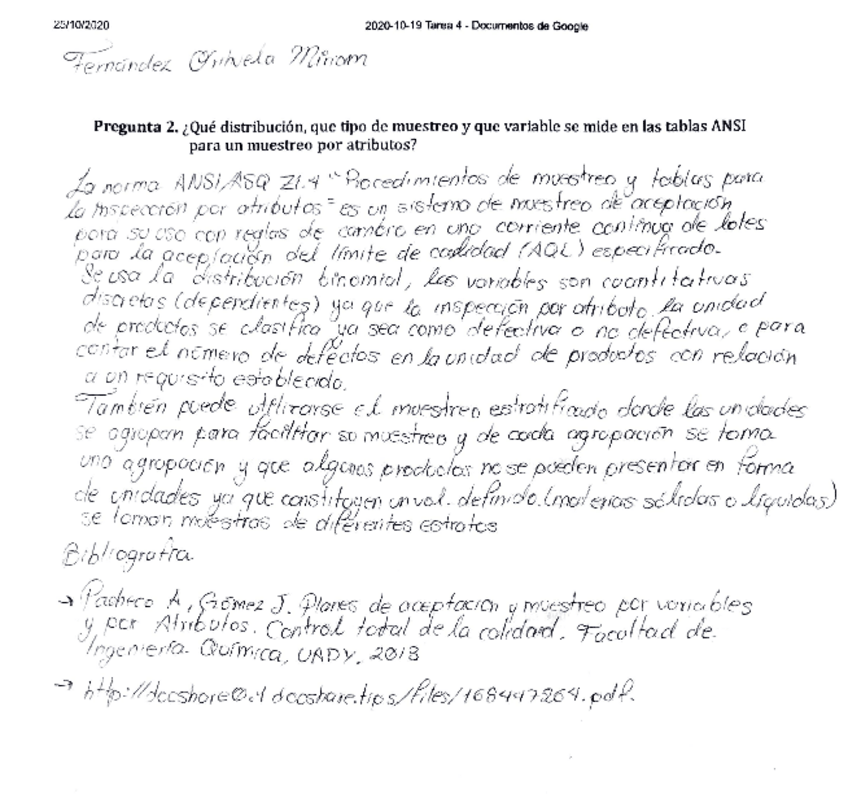 25/10/2020 2020-10-19 Tarea 4 - Documentos de Google
Fernández Orihuela Miriam
Pregunta 2. ¿Qué distribución, que tipo de muestreo y que variable se mide en las tablas ANSI
para un muestreo por atributos?
La norma ANSI/ASQ Z1.4 "Procedimientos de muestreo y tablas para
la inspección por atributos" es un sistema de muestreo de aceptación
para su uso con reglas de cambio en una corriente continua de lotes
para la aceptación del límite de calidad (AQL) especificado.
Se usa la distribución binomial, las variables son cuantitativas
discretas (dependientes) ya que la inspección por atributo, la unidad
de productos se clasifica ya sea como defectiva o no defectiva, o para
contar el número de defectos en la unidad de productos con relación
a un requisito establecido.
También puede utilizarse el muestreo estratificado donde las unidades
se agrupan para facilitar su muestreo y de cada agrupación se toma
una agrupación y que algunos productos no se pueden presentar en forma
de unidades ya que constituyen un vol. definido. (materias sólidas o líquidas)
se toman muestras de diferentes estratos
Bibliografía
→ Pacheco A, Gómez J. Planes de aceptación y muestreo por variables
y por Atributos. Control total de la calidad. Facultad de
Ingeniería Química, UADY, 2013
→ docshare.tips/files/